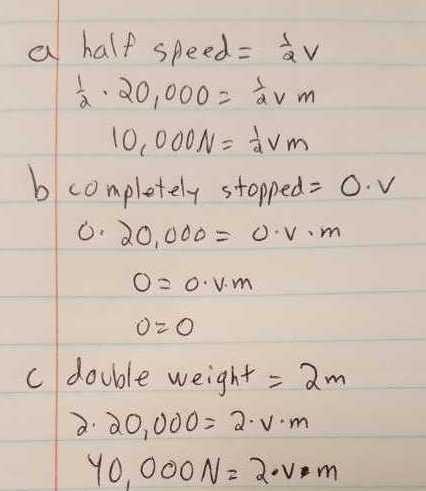 a half speed = ½v
½ · 20,000 = ½ v m
10,000N = ½vm
b completely stopped = 0·v
0· 20,000 = 0·v·m
0 = 0·v·m
0=0
c double weight = 2m
2·20,000 = 2·v·m
40,000N = 2·v·m